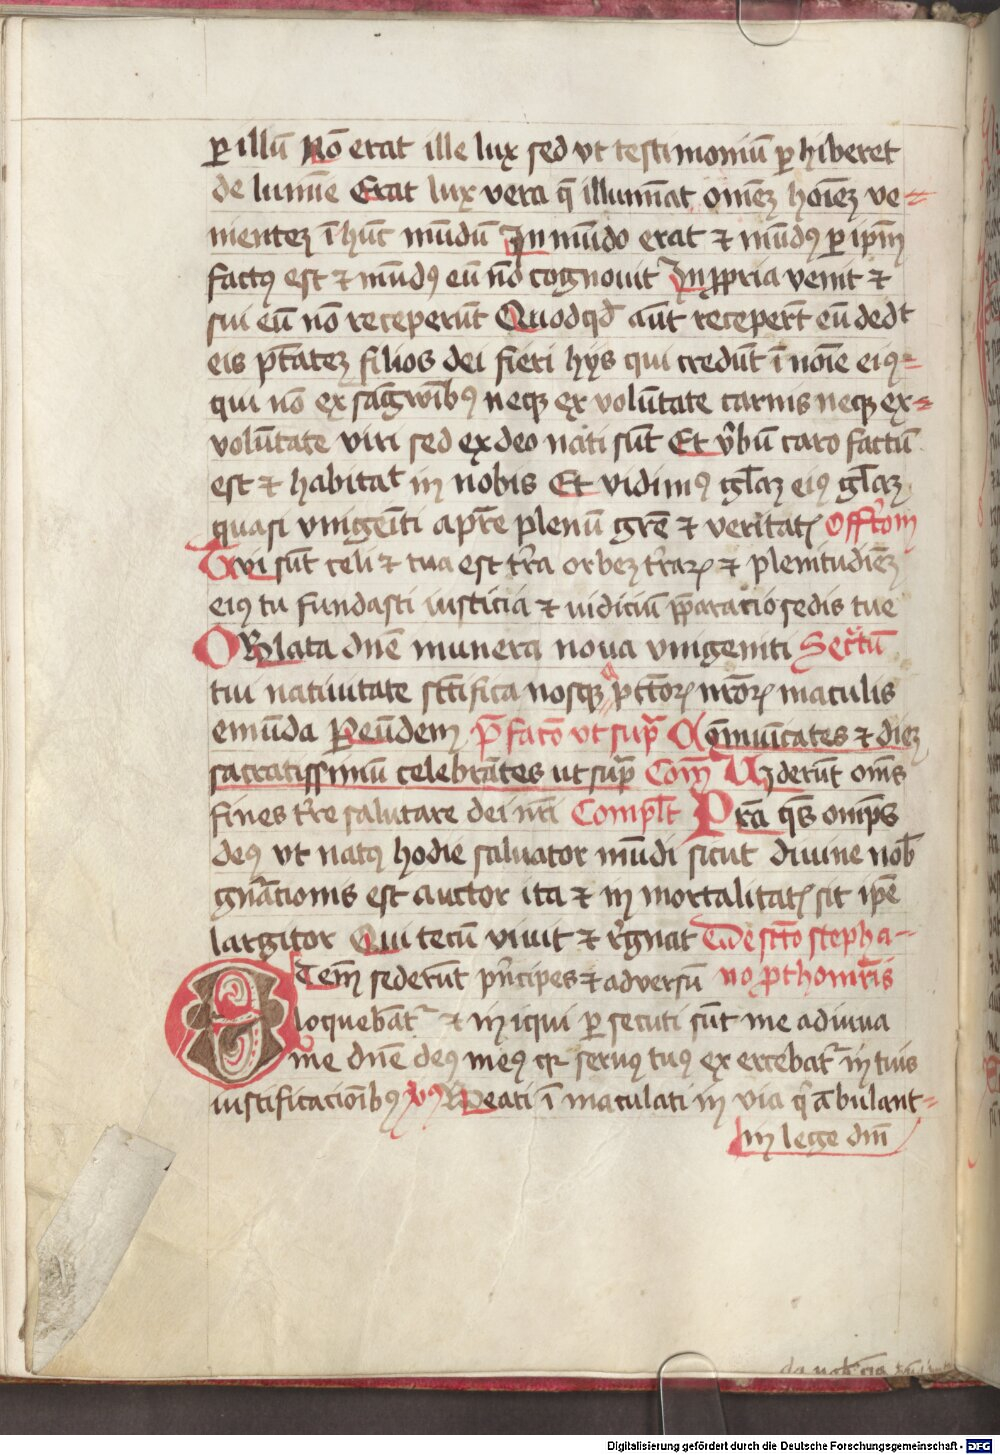 ꝑ illū Nō erat ille lux sed vt testimoniū ꝑhiberet
de lumīe Erat lux vera q̄ illumīat omēꝫ hoīeꝫ ve-
nienteꝫ ī hūc mūdū In mūdo erat ⁊ mūdꝰ ꝑ ip̄m
factꝰ est ⁊ mūdꝰ eū nō cognouit In ꝓpria venit ⁊
sui eū nō receperūt Quodqd̄ aūt recepert̄ eū dedt
eis pt̄ateꝫ filios dei fieri hys qui credūt ī noīe eiꝰ
qui nō ex sāgwinībꝰ neqꝫ ex volūtate carnis neqꝫ ex-
volūtate viri sed ex deo nati sūt Et v̄bū caro factū
est ⁊ habitat in nobis Et vidimꝰ gl̄aꝫ eiꝰ gl̄aꝫ
quasi vnigenīti apr̄e plenū gr̄e ⁊ veritatꝭ Offr̄tom
Tvi sūt celi ⁊ tua est tr̄ra orbeꝫ tr̄raꝝ ⁊ plenitudīeꝫ
eiꝰ tu fundasti iusticia ⁊ iudiciū p̄paracio sedis tue
OBlata dn̄e munera noua vnigeniti Secr̄tū
tui natiuitate sct̄ifica nosqꝫ a pct̄oꝝ nr̄oꝝ maculis
emūda Ꝑ eūdem P̄facō vt sup̄ Cōmuīcates ⁊ dieꝫ
sacratissimū celebrātes ut sup̄ Com̄ Uiderūt om̄s
fines tr̄re salutare dei nr̄i Compl̄t Pr̄a qs̄ omp̄s
deꝰ vt natꝰ hodie saluator mūdi sicut diuine nob̄
gn̄acionis est auctor ita ⁊ in mortalitatꝭ sit ip̄e
largitor Qui tecū viuit ⁊ r̄gnat De sctō stepha-
Tem̄ sederūt pn̄cipes ⁊ adversū no ꝓthomr̄is
loquebāt ⁊ iniqui ꝑsecuti sūt me adiuua
me dn̄e deꝰ meꝰ qr seruꝰ tuꝰ exercebat in tuis
iustificacioībꝰ v̄ꝰ Beati ī maculati in via q̄ ābulant-
in lege dnī
Digitalisierung gefördert durch die Deutsche Forschungsgemeinschaft - DFG